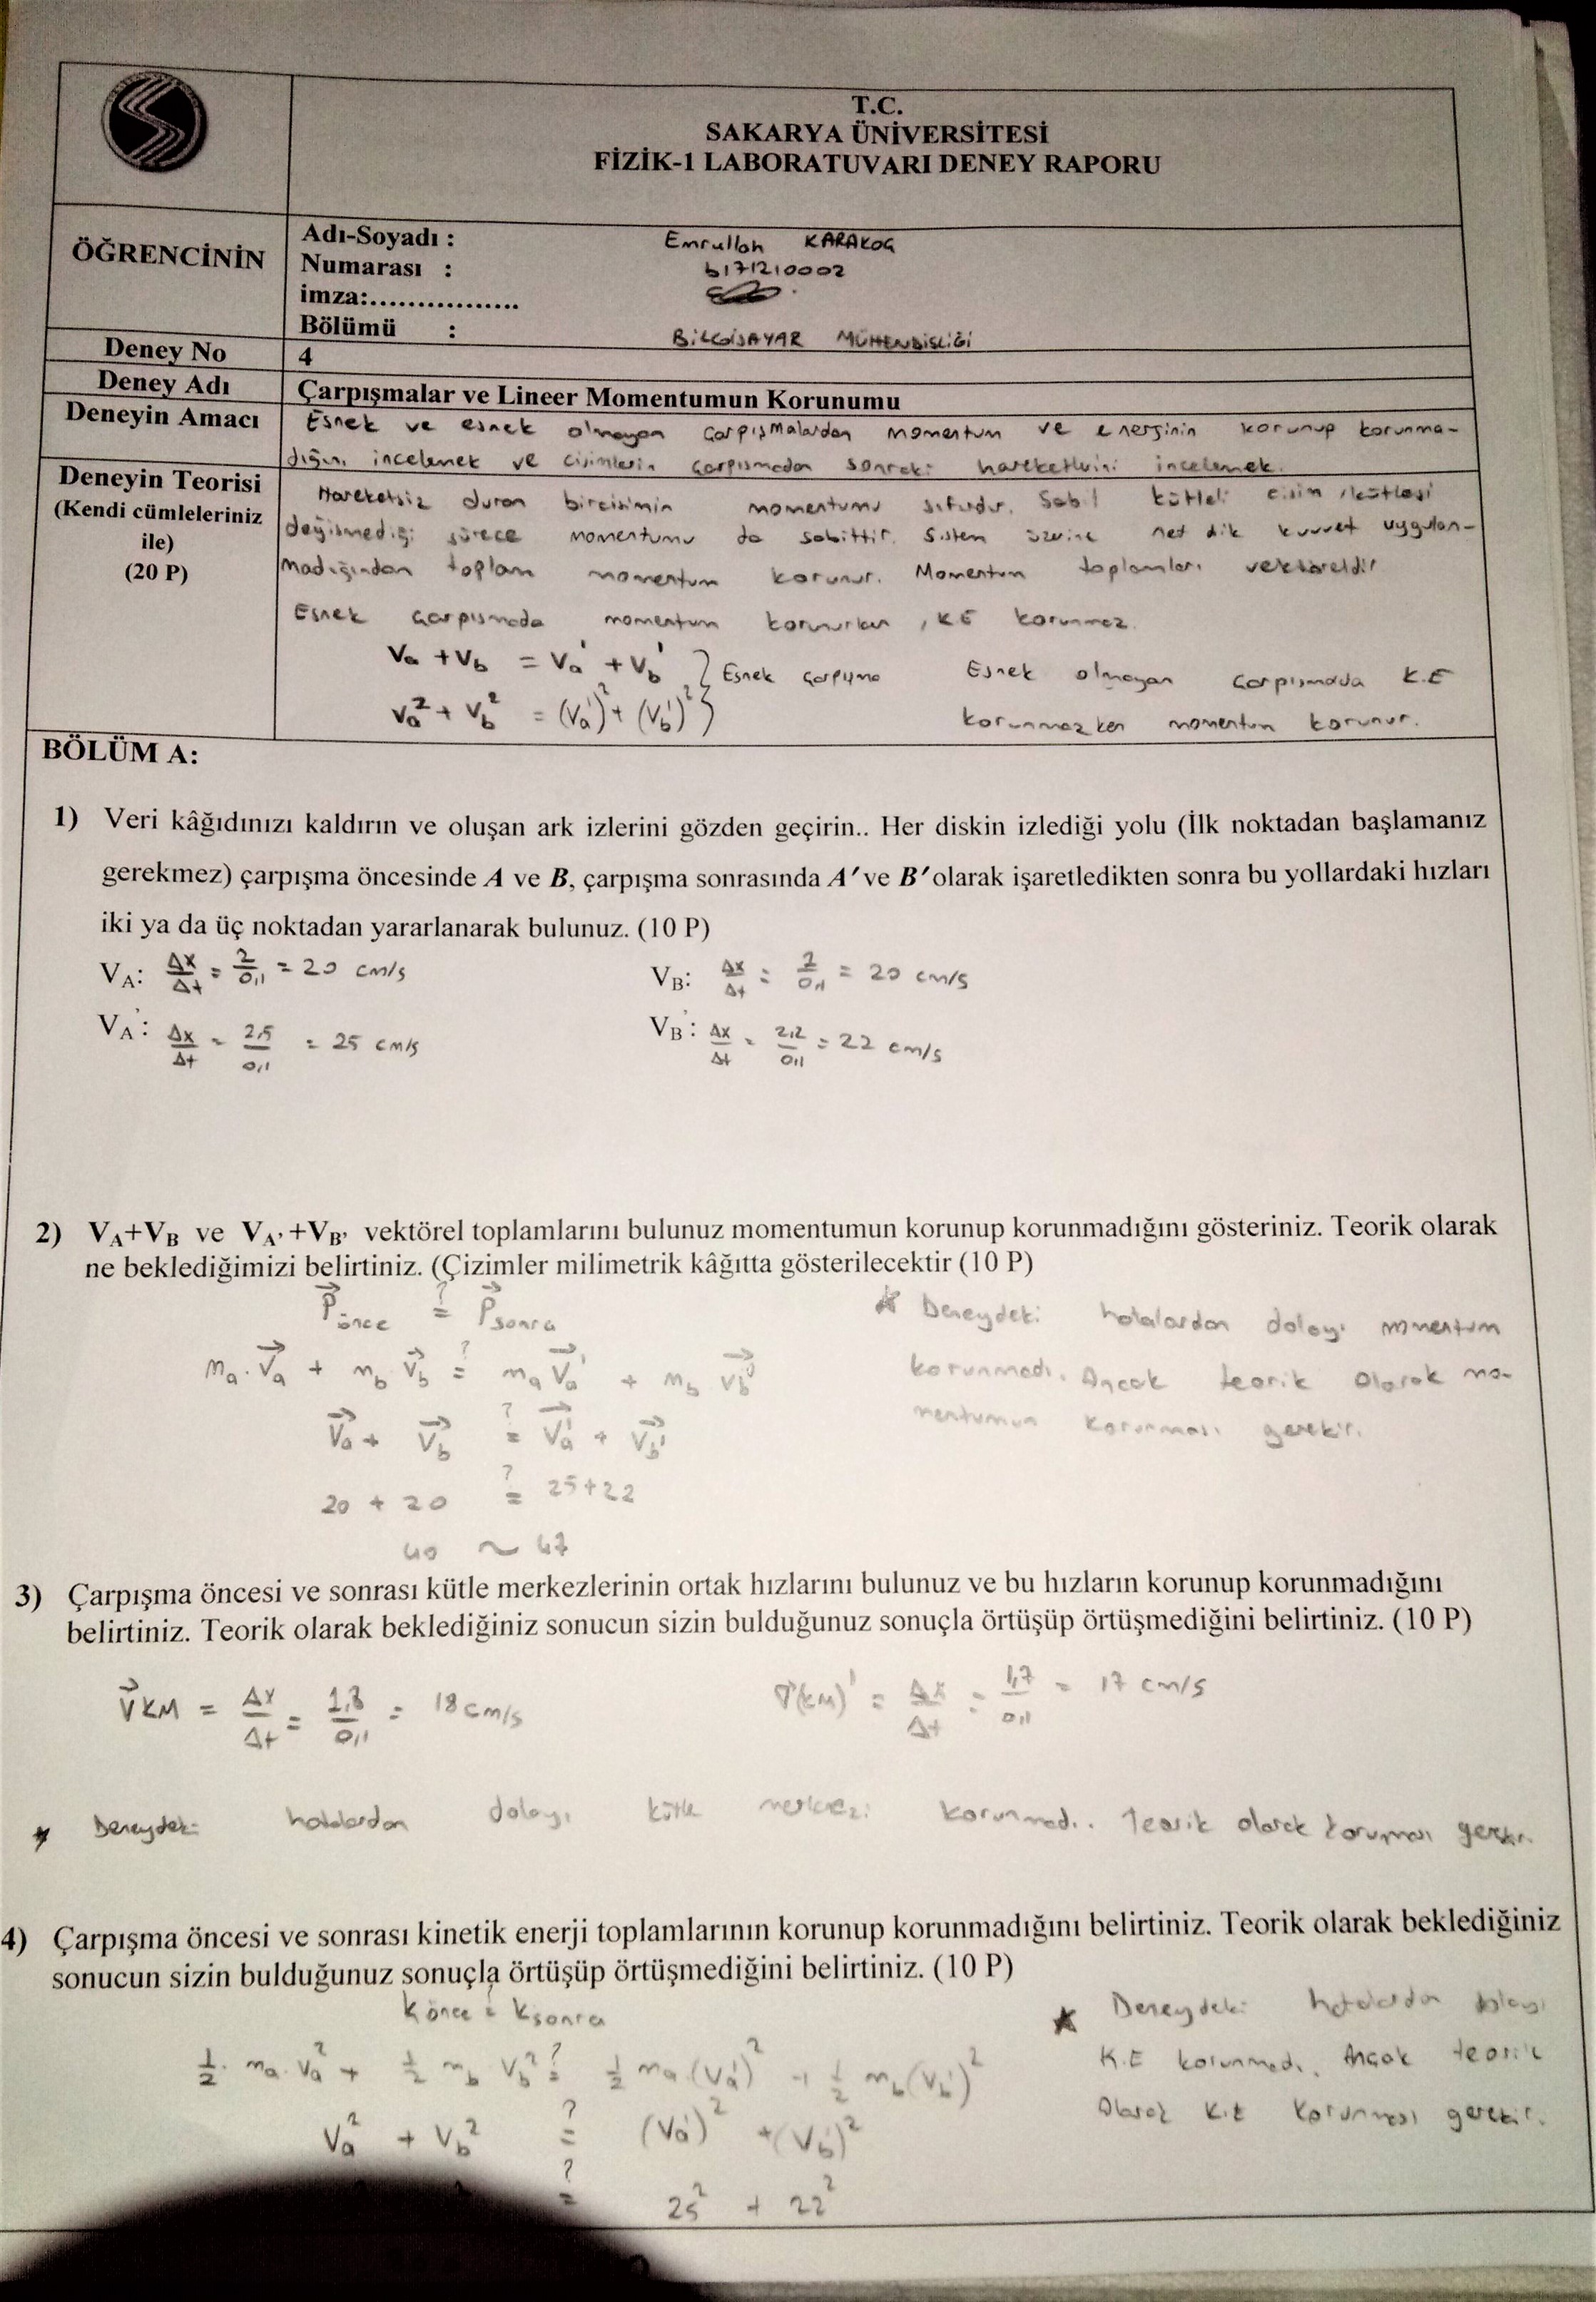 T.C.
SAKARYA ÜNİVERSİTESİ
FİZİK-1 LABORATUVARI DENEY RAPORU
ÖĞRENCİNİN
Adı-Soyadı : Emrullah KARAKOÇ
Numarası : b171210002
imza:................
Bölümü : BİLGİSAYAR MÜHENDİSLİĞİ
Deney No 4
Deney Adı Çarpışmalar ve Lineer Momentumun Korunumu
Deneyin Amacı Esnek ve esnek olmayan çarpışmalardan momentum ve enerjinin korunup korunma-
dığını incelemek ve cisimlerin çarpışmadan sonraki hareketlerini incelemek.
Deneyin Teorisi
(Kendi cümleleriniz
ile)
(20 P)
Hareketsiz duran bir cisimin momentumu sıfırdır. Sabit kütleli cisim, kütlesi
değişmediği sürece momentumu da sabittir. Sistem üzerine net dik kuvvet uygulan-
madığından toplam momentum korunur. Momentum toplamları vektöreldir
Esnek çarpışmada momentum korunurken, KE korunmaz.
Va + Vb = Va' + Vb' } Esnek çarpışma
Va² + Vb² = (Va')² + (Vb')²
Esnek olmayan çarpışmada K.E
korunmazken momentum korunur.
BÖLÜM A:
1) Veri kâğıdınızı kaldırın ve oluşan ark izlerini gözden geçirin.. Her diskin izlediği yolu (İlk noktadan başlamanız
gerekmez) çarpışma öncesinde A ve B, çarpışma sonrasında A' ve B' olarak işaretledikten sonra bu yollardaki hızları
iki ya da üç noktadan yararlanarak bulunuz. (10 P)
VA: Δx/Δt = 2/0,1 = 20 cm/s VB: Δx/Δt = 2/0,1 = 20 cm/s
VA': Δx/Δt = 2,5/0,1 = 25 cm/s VB': Δx/Δt = 2,2/0,1 = 22 cm/s
2) VA+VB ve VA'+VB' vektörel toplamlarını bulunuz momentumun korunup korunmadığını gösteriniz. Teorik olarak
ne beklediğimizi belirtiniz. (Çizimler milimetrik kâğıtta gösterilecektir (10 P)
P⃗önce ?= P⃗sonra
ma.V⃗a + mb V⃗b ?= ma V⃗a' + mb V⃗b'
V⃗a + V⃗b ?= V⃗a' + V⃗b'
20 + 20 ?= 25+22
40 ~ 47
* Deneydeki hatalardan dolayı momentum
korunmadı. Ancak teorik olarak mo-
mentumun korunması gerekir.
3) Çarpışma öncesi ve sonrası kütle merkezlerinin ortak hızlarını bulunuz ve bu hızların korunup korunmadığını
belirtiniz. Teorik olarak beklediğiniz sonucun sizin bulduğunuz sonuçla örtüşüp örtüşmediğini belirtiniz. (10 P)
V⃗KM = Δx/Δt = 1,8/0,1 = 18 cm/s V(KM)' = Δx/Δt = 1,7/0,1 = 17 cm/s
* Deneydeki hatalardan dolayı kütle merkezi korunmadı. Teorik olarak korunması gerekir.
4) Çarpışma öncesi ve sonrası kinetik enerji toplamlarının korunup korunmadığını belirtiniz. Teorik olarak beklediğiniz
sonucun sizin bulduğunuz sonuçla örtüşüp örtüşmediğini belirtiniz. (10 P)
Könce ?= Ksonra
1/2. ma.Va² + 1/2 mb Vb² ?= 1/2 ma.(Va')² + 1/2 mb(Vb')²
Va² + Vb² ?= (Va')² + (Vb')²
?= 25² + 22²
* Deneydeki hatalardan dolayı
K.E korunmadı. Ancak teorik
olarak K.E korunması gerekir.